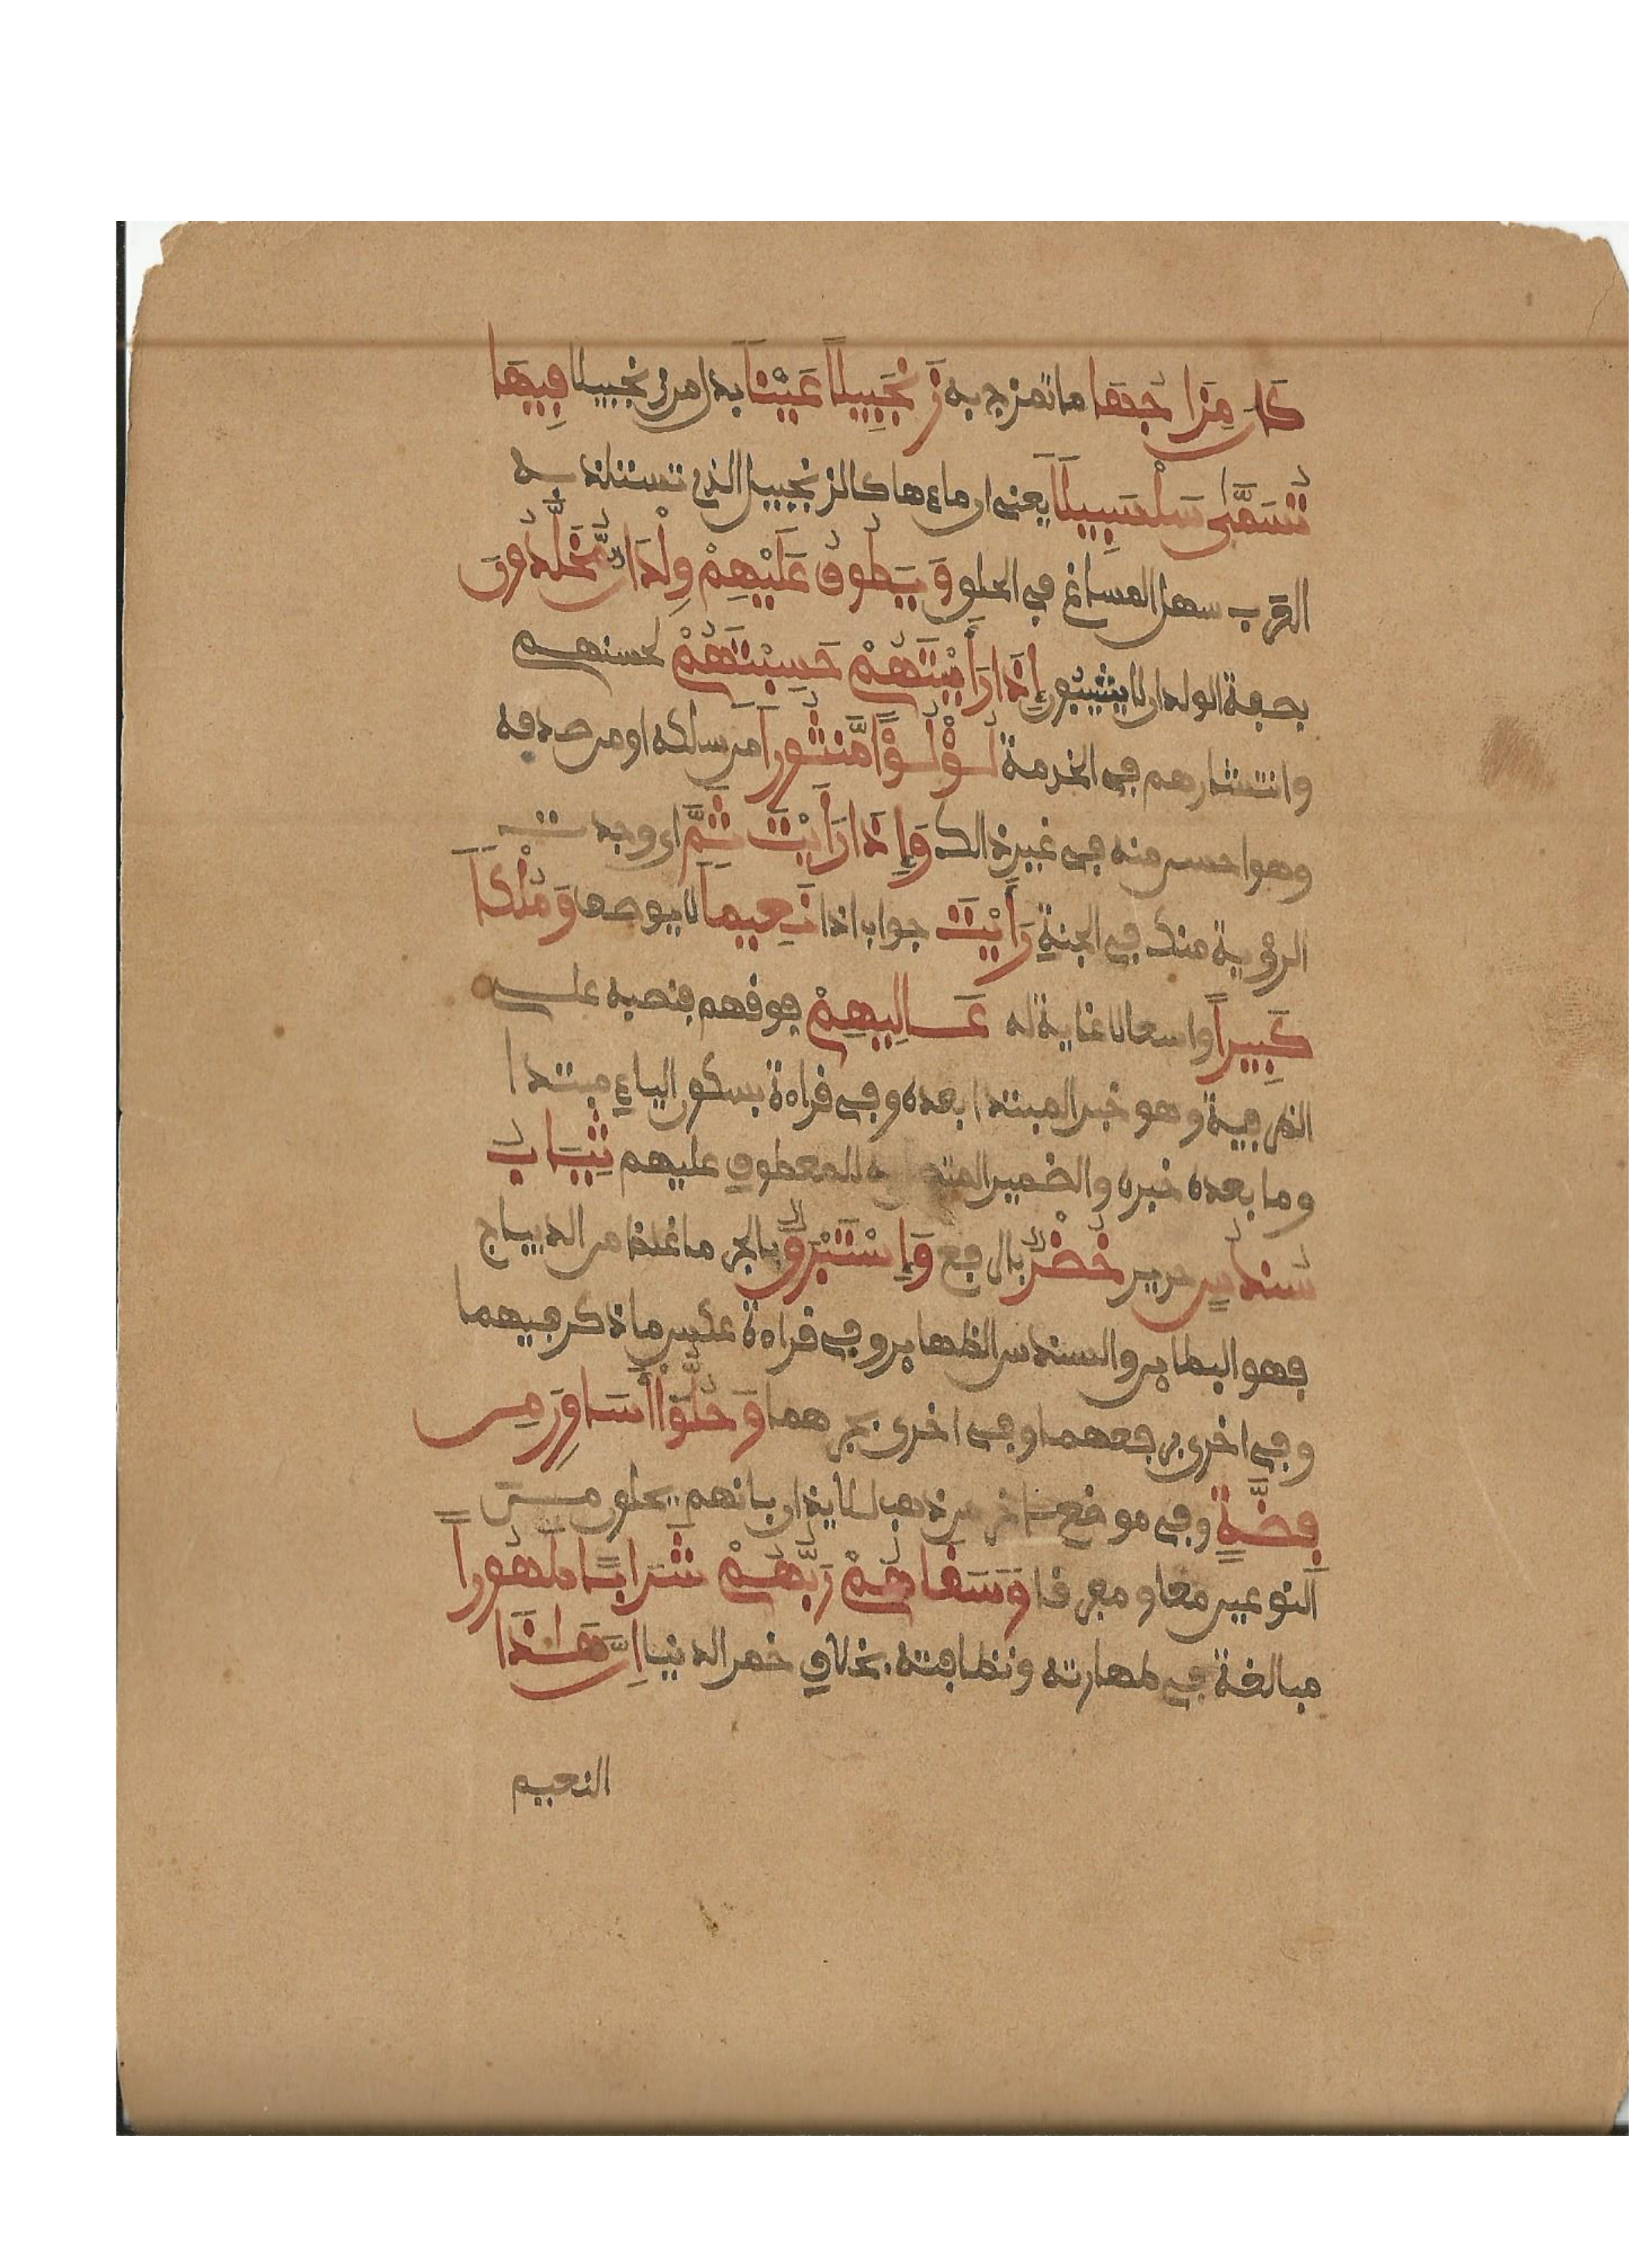 كَانَ مِزَاجُهَا ما تمزج به زَنجَبِيلًا عَيْنًا بدل من زنجبيلا فِيهَا
تُسَمَّىٰ سَلْسَبِيلًا يعنى ان ماءها كالزنجبيل الذى تستلذ به
العرب سهل المساغ في الحلق وَيَطُوفُ عَلَيْهِمْ وِلْدَانٌ مُّخَلَّدُونَ
بصفة الولدان لا يشيبون إِذَا رَأَيْتَهُمْ حَسِبْتَهُمْ لحسنهم
وانتشارهم في الخدمة لُؤْلُؤًا مَّنثُورًا من سلكه او من صدفه
وهو احسن منه في غير ذالك وَإِذَا رَأَيْتَ ثَمَّ اى وجدت
الرؤية منك في الجنة رَأَيْتَ جواب اذا نَعِيمًا لا يوصف وَمُلْكًا
كَبِيرًا واسعا لا غاية له عَالِيَهُمْ فوقهم فنصبه على
الظرفية وهو خبر المبتدا بعده وفي قراءة بسكون الياء مبتدا
وما بعده خبره والضمير المتصل به للمعطوف عليهم ثِيَابُ
سُندُسٍ حرير خُضْرٌ بالرفع وَإِسْتَبْرَقٍ بالجر ما غلظ من الديباج
فهو البطاين والسندس الظهاير وفي قراءة عكس ما ذكر فيهما
وفي اخرى برفعهما وفي اخرى بجرهما وَحُلُّوٓا أَسَاوِرَ مِن
فِضَّةٍ وفي موضع ءاخر من ذهب للايذان بانهم يحلون من
النوعين معا ومفرقا وَسَقَاهُمْ رَبُّهُمْ شَرَابًا طَهُورًا
مبالغة في طهارته ونظافته بخلاف خمر الدنيا إِنَّ هَٰذَا
النعيم